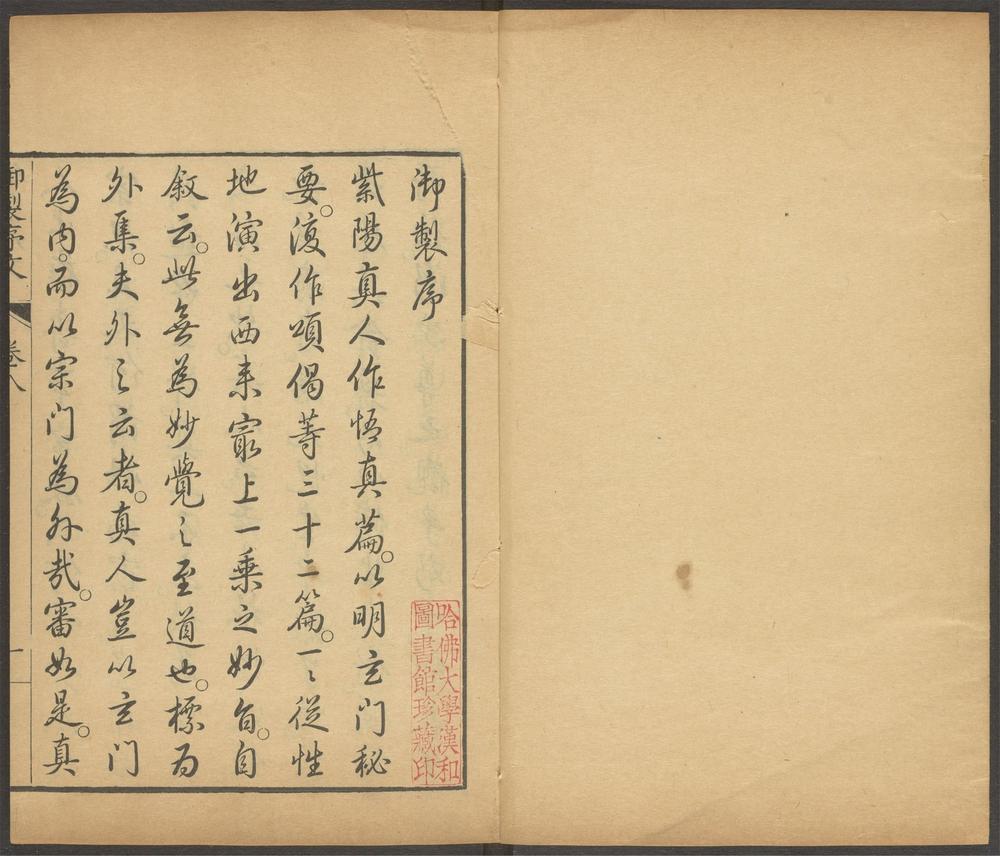 御製序
紫陽真人作悟真篇。以明玄门秘
要。復作頌偈等三十二篇。一々從性
地演出西来㝡上一乗之妙旨。自
敘云。此無為妙覺之至道也。標为
外集。夫外之云者。真人豈以玄门
為内。而以宗门為外哉。審如是。真
御製序文
卷八
一
哈佛大學漢和
圖書館珍藏印